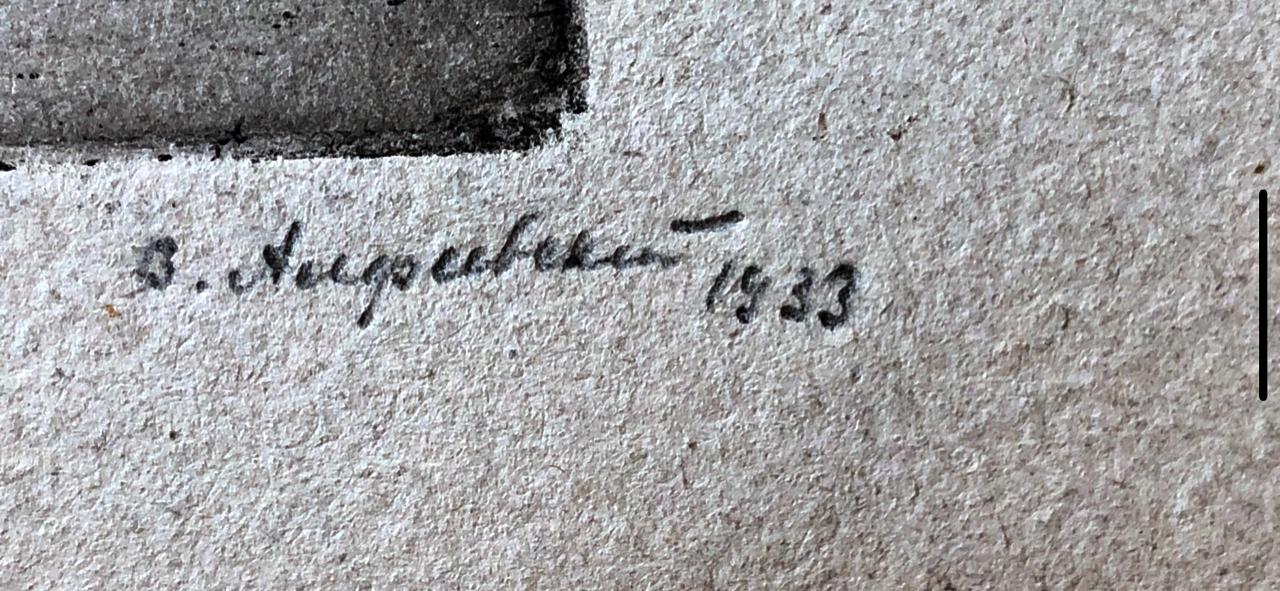 В. Андреевский 1933